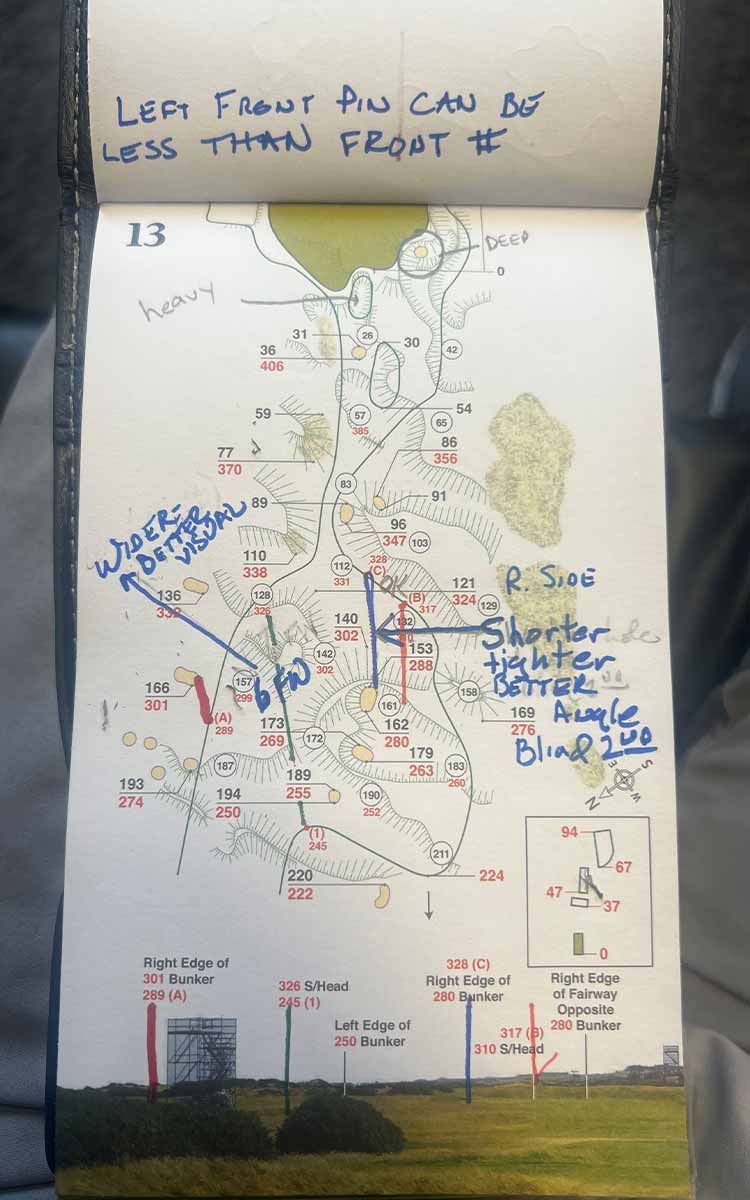 LEFT FRONT PIN CAN BE
LESS THAN FRONT #
13
DEEP
0
heavy
31
26
30
36
406
42
59
57
385
54
65
77
370
86
356
83
89
91
96
347
103
WIDER-
BETTER
VISUAL
110
338
112
331
328
(C)
OK
121
324
R. SIDE
136
332
128
326
(B)
317
129
140
302
132
Shorter
tighter
BETTER
Angle
Blind 2nd
142
302
153
288
157
299
6 FW
166
301
158
(A)
289
161
162
280
169
276
173
269
172
179
263
187
183
260
193
274
189
255
194
250
190
252
S
E
W
N
(1)
245
211
220
222
224
94
67
47
37
0
Right Edge of
301 Bunker
289 (A)
326 S/Head
245 (1)
Left Edge of
250 Bunker
328 (C)
Right Edge of
280 Bunker
317 (B)
310 S/Head
Right Edge
of Fairway
Opposite
280 Bunker